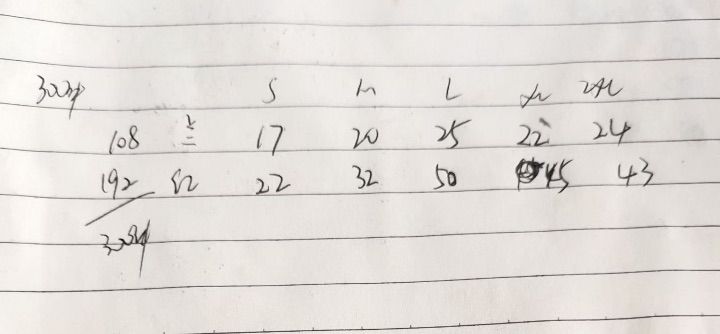 300 S M L XL 2XL
108 兰 17 20 25 22 24
192 红 22 32 50 45 43
300